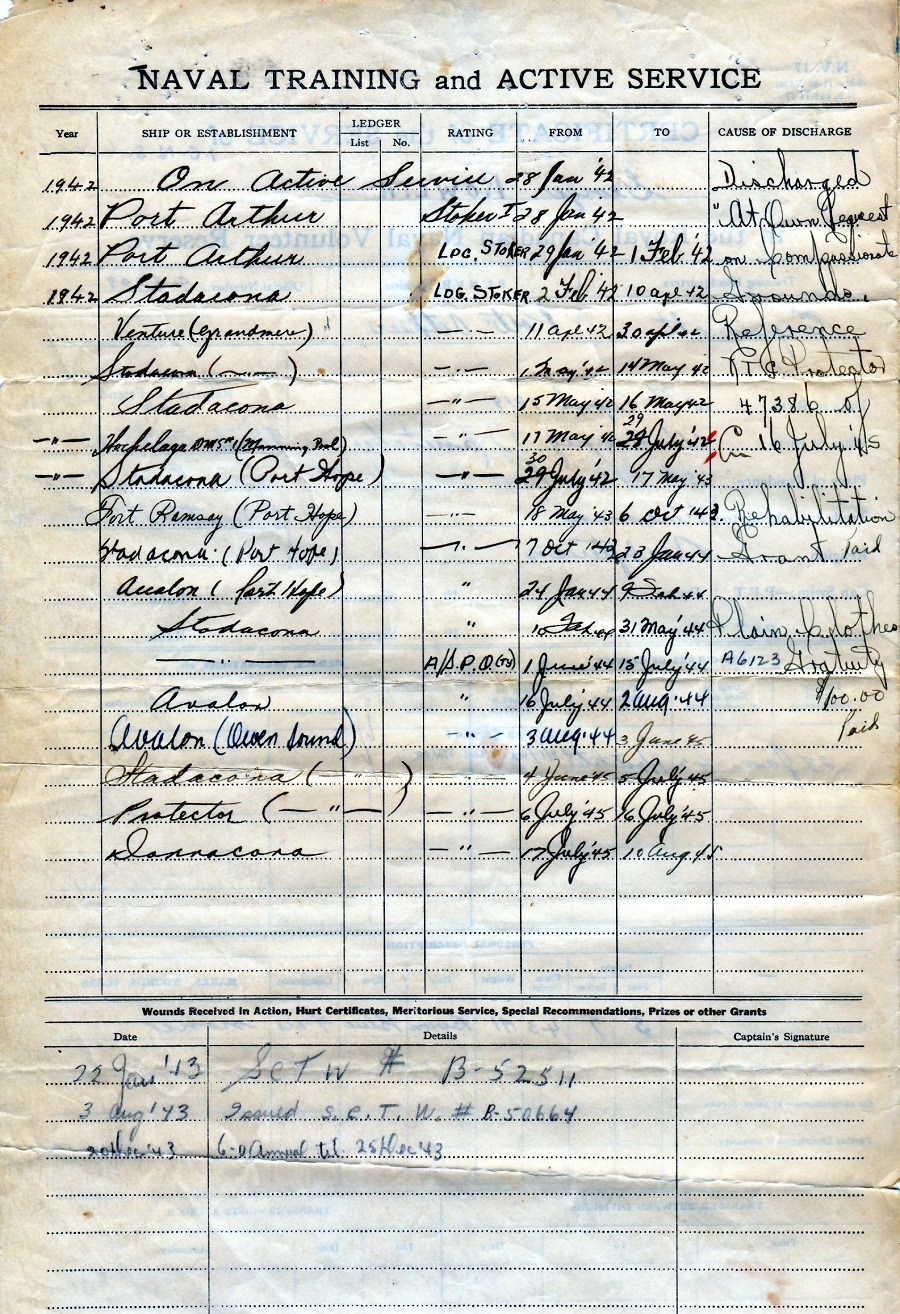 NAVAL TRAINING and ACTIVE SERVICE
Year SHIP OR ESTABLISHMENT LEDGER List No. RATING FROM TO CAUSE OF DISCHARGE
1942 On Active Service 28 Jan '42 Discharged
1942 Port Arthur Stoker I 28 Jan 42 "At Own Request
1942 Port Arthur LDG. STOKER 29 Jan '42 1 Feb '42 on Compassionate
1942 Stadacona LDG. STOKER 2 Feb '42 10 apl 42 Grounds.
Venture (Grandmere) — " — 11 apl 42 30 apl 42 Reference
Stadacona ( — " — ) — " — 1 May '42 14 May 42 Protector
Stadacona — " — 15 May 42 16 May 42 47386 of
— " — (Manning Pool) — " — 17 May 42 29 July '42 16 July '45
— " — Stadacona (Port Hope) — " — 30 29 July '42 17 May '43
Fort Ramsay (Port Hope) — " — 18 May '43 6 Oct '43 Rehabilitation
Stadacona (Port Hope) — " — 7 Oct '43 23 Jan 44 Grant Paid
Avalon (Port Hope) " 24 Jan 44 9 Feb 44
Stadacona " 10 Feb 44 31 May '44 Plain Clothes
— " — A/S.P.O.(Ty) 1 June '44 15 July '44 A6123 Gratuity
Avalon " 16 July '44 2 Aug '44 $100.00
Avalon (Owen Sound) — " — 3 Aug '44 3 June 45 Paid
Stadacona ( — " — ) — " — 4 June 45 5 July '45
Protector ( — " — ) — " — 6 July '45 16 July '45
Donnacona — " — 17 July '45 10 Aug 45
Wounds Received in Action, Hurt Certificates, Meritorious Service, Special Recommendations, Prizes or other Grants
Date Details Captain's Signature
22 Jan '43 S C T W # B-52511
3 Aug '43 Issued S.C.T.W. # B-50664
20 Dec '43 Annual 25 Dec '43